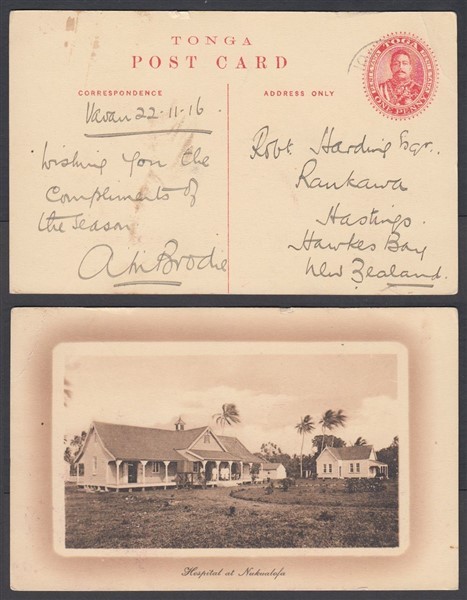 TONGA
POST CARD
CORRESPONDENCE
ADDRESS ONLY
TOGA
ONE PENNY
Vavau 22-11-16
Wishing you the
Compliments of
the season
A M Brodie
Robt. Harding Esqr.
Raukawa
Hastings.
Hawkes Bay
New Zealand.
Hospital at Nukualofa